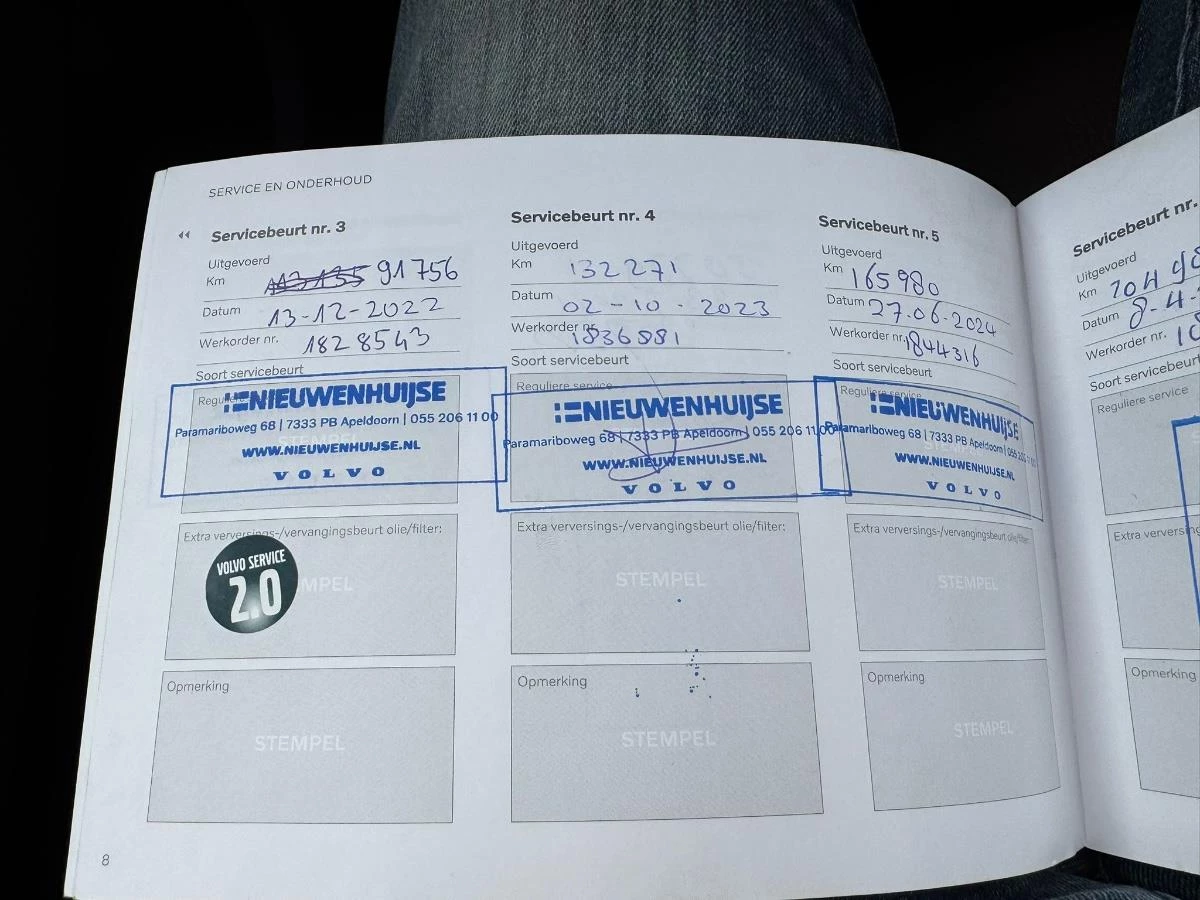 SERVICE EN ONDERHOUD
Servicebeurt nr. 3
Uitgevoerd
Km 113135 91756
Datum 13-12-2022
Werkorder nr. 1828543
Soort servicebeurt
NIEUWENHUIJSE
Paramariboweg 68 | 7333 PB Apeldoorn | 055 206 11 00
WWW.NIEUWENHUIJSE.NL
VOLVO
Extra verversings-/vervangingsbeurt olie/filter:
VOLVO SERVICE
2.0
STEMPEL
Opmerking
STEMPEL
Servicebeurt nr. 4
Uitgevoerd
Km 132271
Datum 02-10-2023
Werkorder nr. 1836881
Soort servicebeurt
Reguliere service
NIEUWENHUIJSE
Paramariboweg 68 | 7333 PB Apeldoorn | 055 206 11 00
WWW.NIEUWENHUIJSE.NL
VOLVO
Extra verversings-/vervangingsbeurt olie/filter:
STEMPEL
Opmerking
STEMPEL
Servicebeurt nr. 5
Uitgevoerd
Km 165980
Datum 27.06-2024
Werkorder nr. 1844316
Soort servicebeurt
Reguliere service
NIEUWENHUIJSE
Paramariboweg 68 | 7333 PB Apeldoorn | 055 206 11 00
WWW.NIEUWENHUIJSE.NL
VOLVO
Extra verversings-/vervangingsbeurt olie/filter:
STEMPEL
Opmerking
STEMPEL
8
Servicebeurt nr.
Uitgevoerd
Km
Datum 8-4-
Werkorder nr.
Soort servicebeurt
Reguliere service
Extra
Opmerking